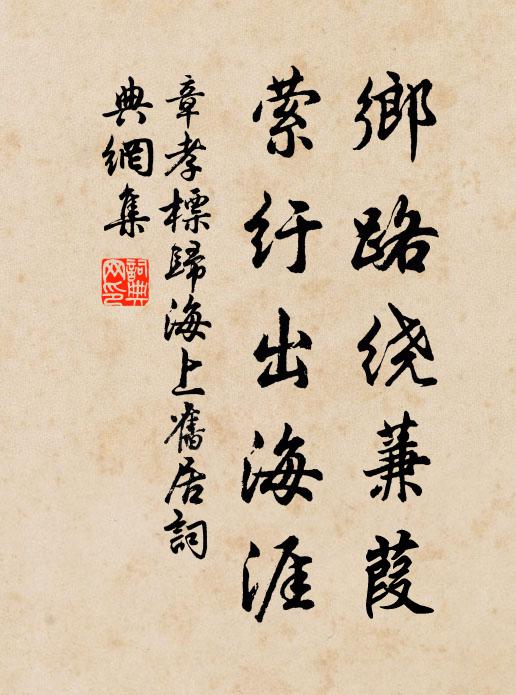 鄉路繞蒹葭
縈紆出海涯
章孝標歸海上舊居詞
典網集
詞典
网印